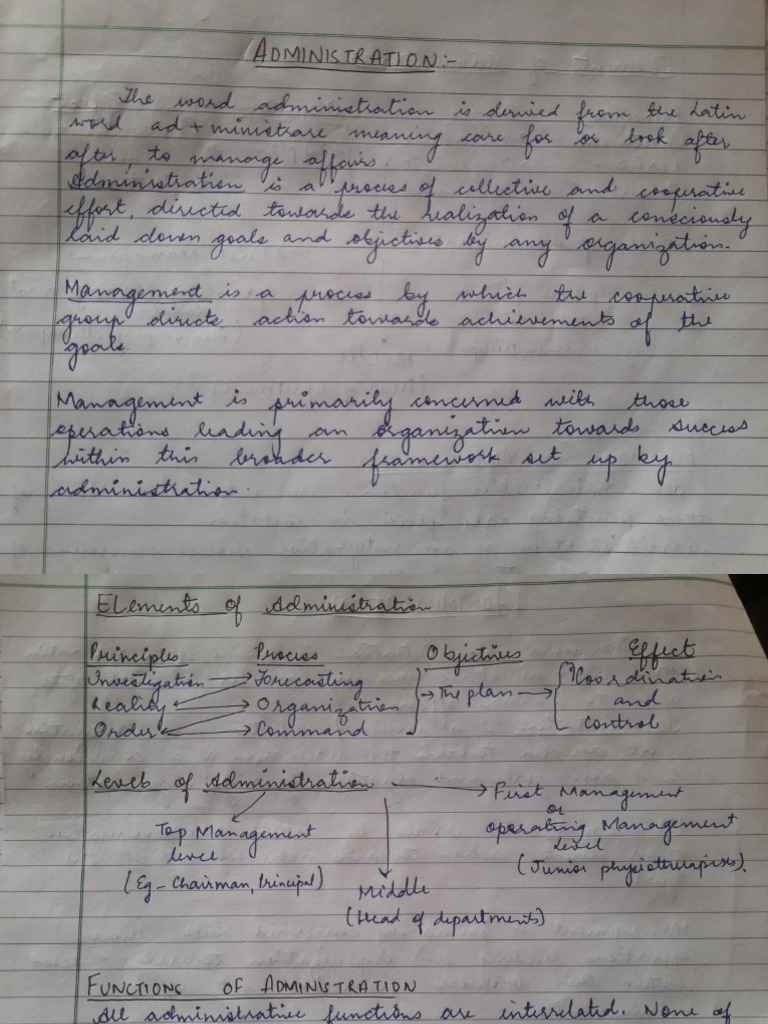 ADMINISTRATION:-
The word administration is derived from the Latin
word ad + ministrare meaning care for or look after
after, to manage affairs.
Administration is a process of collective and cooperative
effort, directed towards the realization of a consciously
laid down goals and objectives by any organization.
Management is a process by which the cooperative
group directs action towards achievements of the
goals.
Management is primarily concerned with those
operations leading an organization towards success
within this broader framework set up by
administration.
Elements of Administration
Principles Process Objectives Effect
Investigation Forecasting The plan Coordination
Reality Organization and
Order Command control
Levels of Administration
First Management
or
Top Management operating Management
level level
(Eg - Chairman, Principal) (Junior physiotherapists).
Middle
(Head of departments)
FUNCTIONS OF ADMINISTRATION
All administrative functions are interrelated. None of